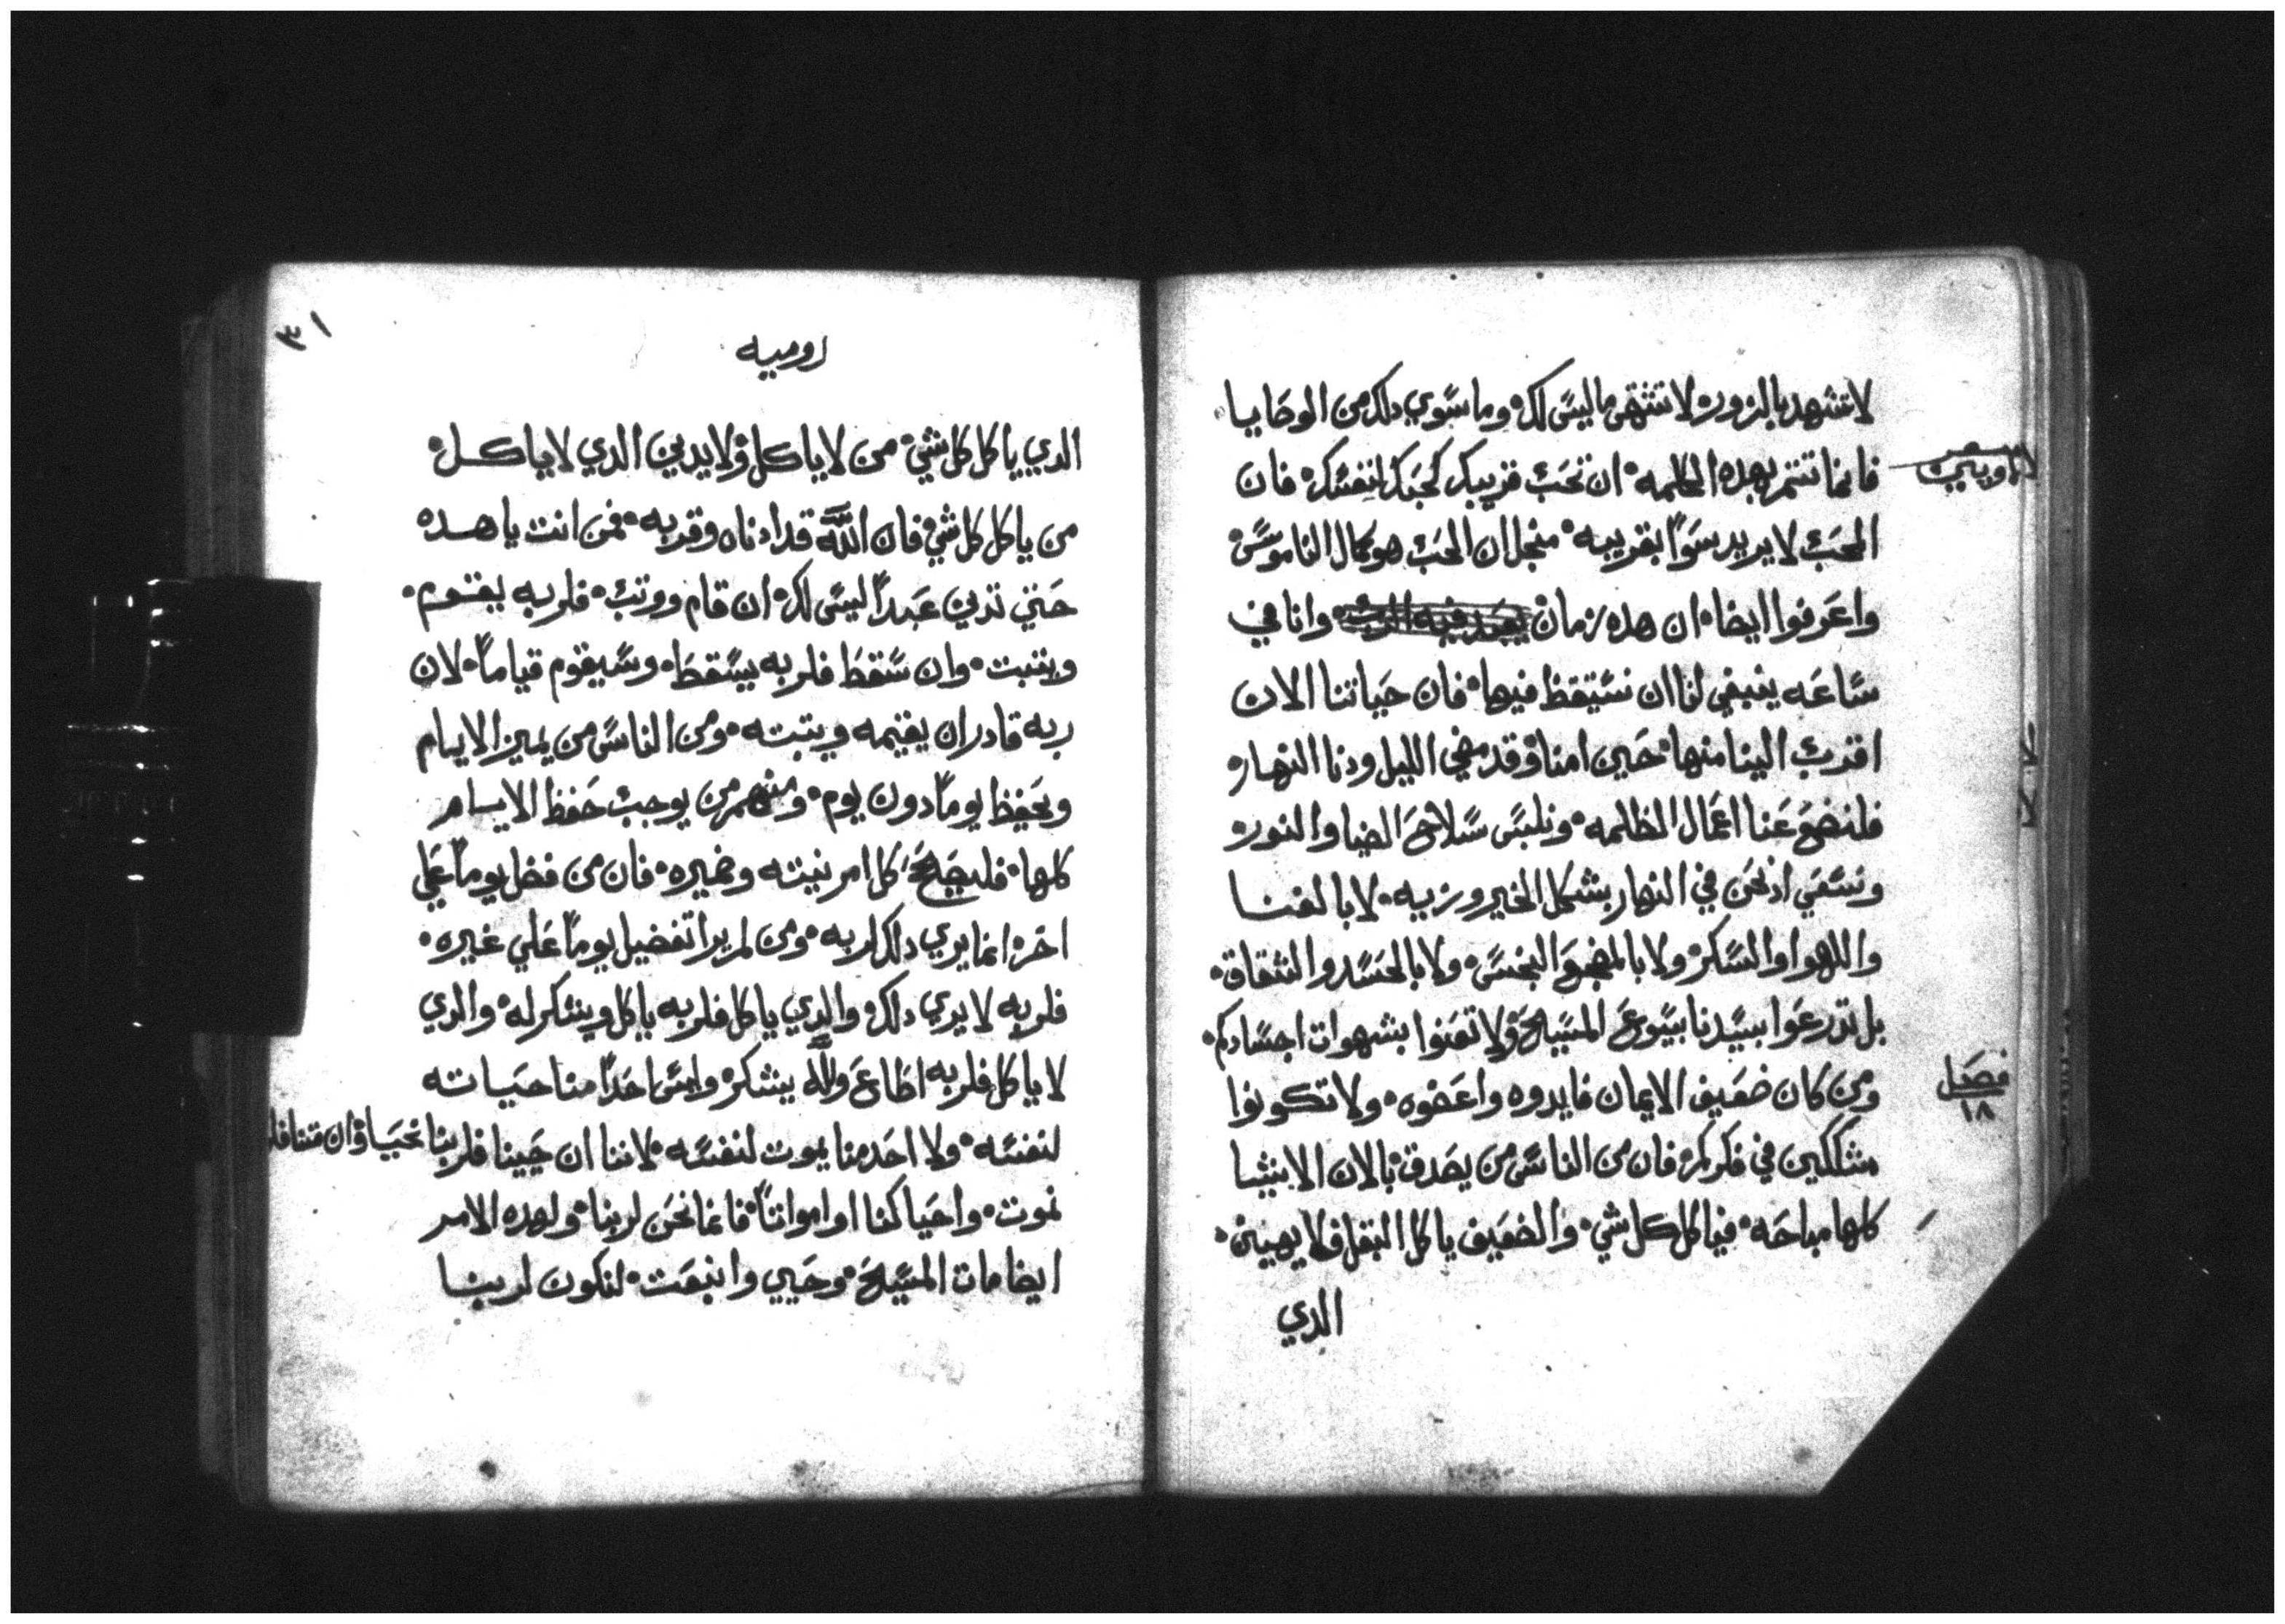 لاتشهد بالزور لاتشتهى ماليس لك وما سوي دلك من الوصايا
فانما تتم بهده الكلمه ان تحب قريبك كحبك لنفسك فان
المحب لا يريد سوا بقريبه منجل ان الحب هو كمال الناموس
واعرفوا ايضا ان هده زمان وانا في
ساعه ينبغي لنا ان نستيقظ فيها فان حياتنا الان
اقترب الينا منها حين امنا وقد مضي الليل ودنا النهار
فلنضع عنا اعمال الظلمه ونلبس سلاح الضيا والنور
ونسعي ادنحن في النهار بشكل الخير وزيه لا بالغنا
واللهوا والسكر ولا بالمضجع النجس ولا بالحسد والشقاق
بل تدرعوا بسيدنا يسوع المسيح ولا تعنوا بشهوات اجسادكم
ومن كان ضعيف الايمان فايدوه واعضوه ولا تكونوا
مشككين في فكركم فان من الناس من يصدق بالان الاشيا
كلها مباحه فياكل كل شي والضعيف ياكل البقل ولا يهينن
الدي
فصل
١٨
٣١
روميه
الدي ياكل كل شي من لا ياكل ولايدين الدي لاياكل
من ياكل كل شي فان الله قد ادناه وقربه فمن انت ياهده
حتي تدين عبدا ليس لك ان قام ووتب فلربه يقوم
ويتبت وان سقط فلربه يسقط وسيقوم قياما لان
ربه قادر ان يقيمه ويتبته ومن الناس من يميز الايام
ويحفظ يوما دون يوم ومنهم من يوجب حفظ الايام
كلها فليصح كل امر نيته وضميره فان من فضل يوما علي
اخر انما يري دلك لربه ومن لم يرا تفضيل يوما علي غيره
فلربه لايري دلك والدي ياكل فلربه ياكل ويشكر له والدي
لا ياكل فلربه اطاع ولله يشكر وليس احدا منا حياته
لنفسه ولا احد منا يموت لنفسه لاننا ان حيينا فلربنا نحيا وان متنا فلربنا
نموت واحيا كنا او امواتا فانما نحن لربنا ولهده الامر
ايضا مات المسيح وحيي وانبعت لنكون لربنا